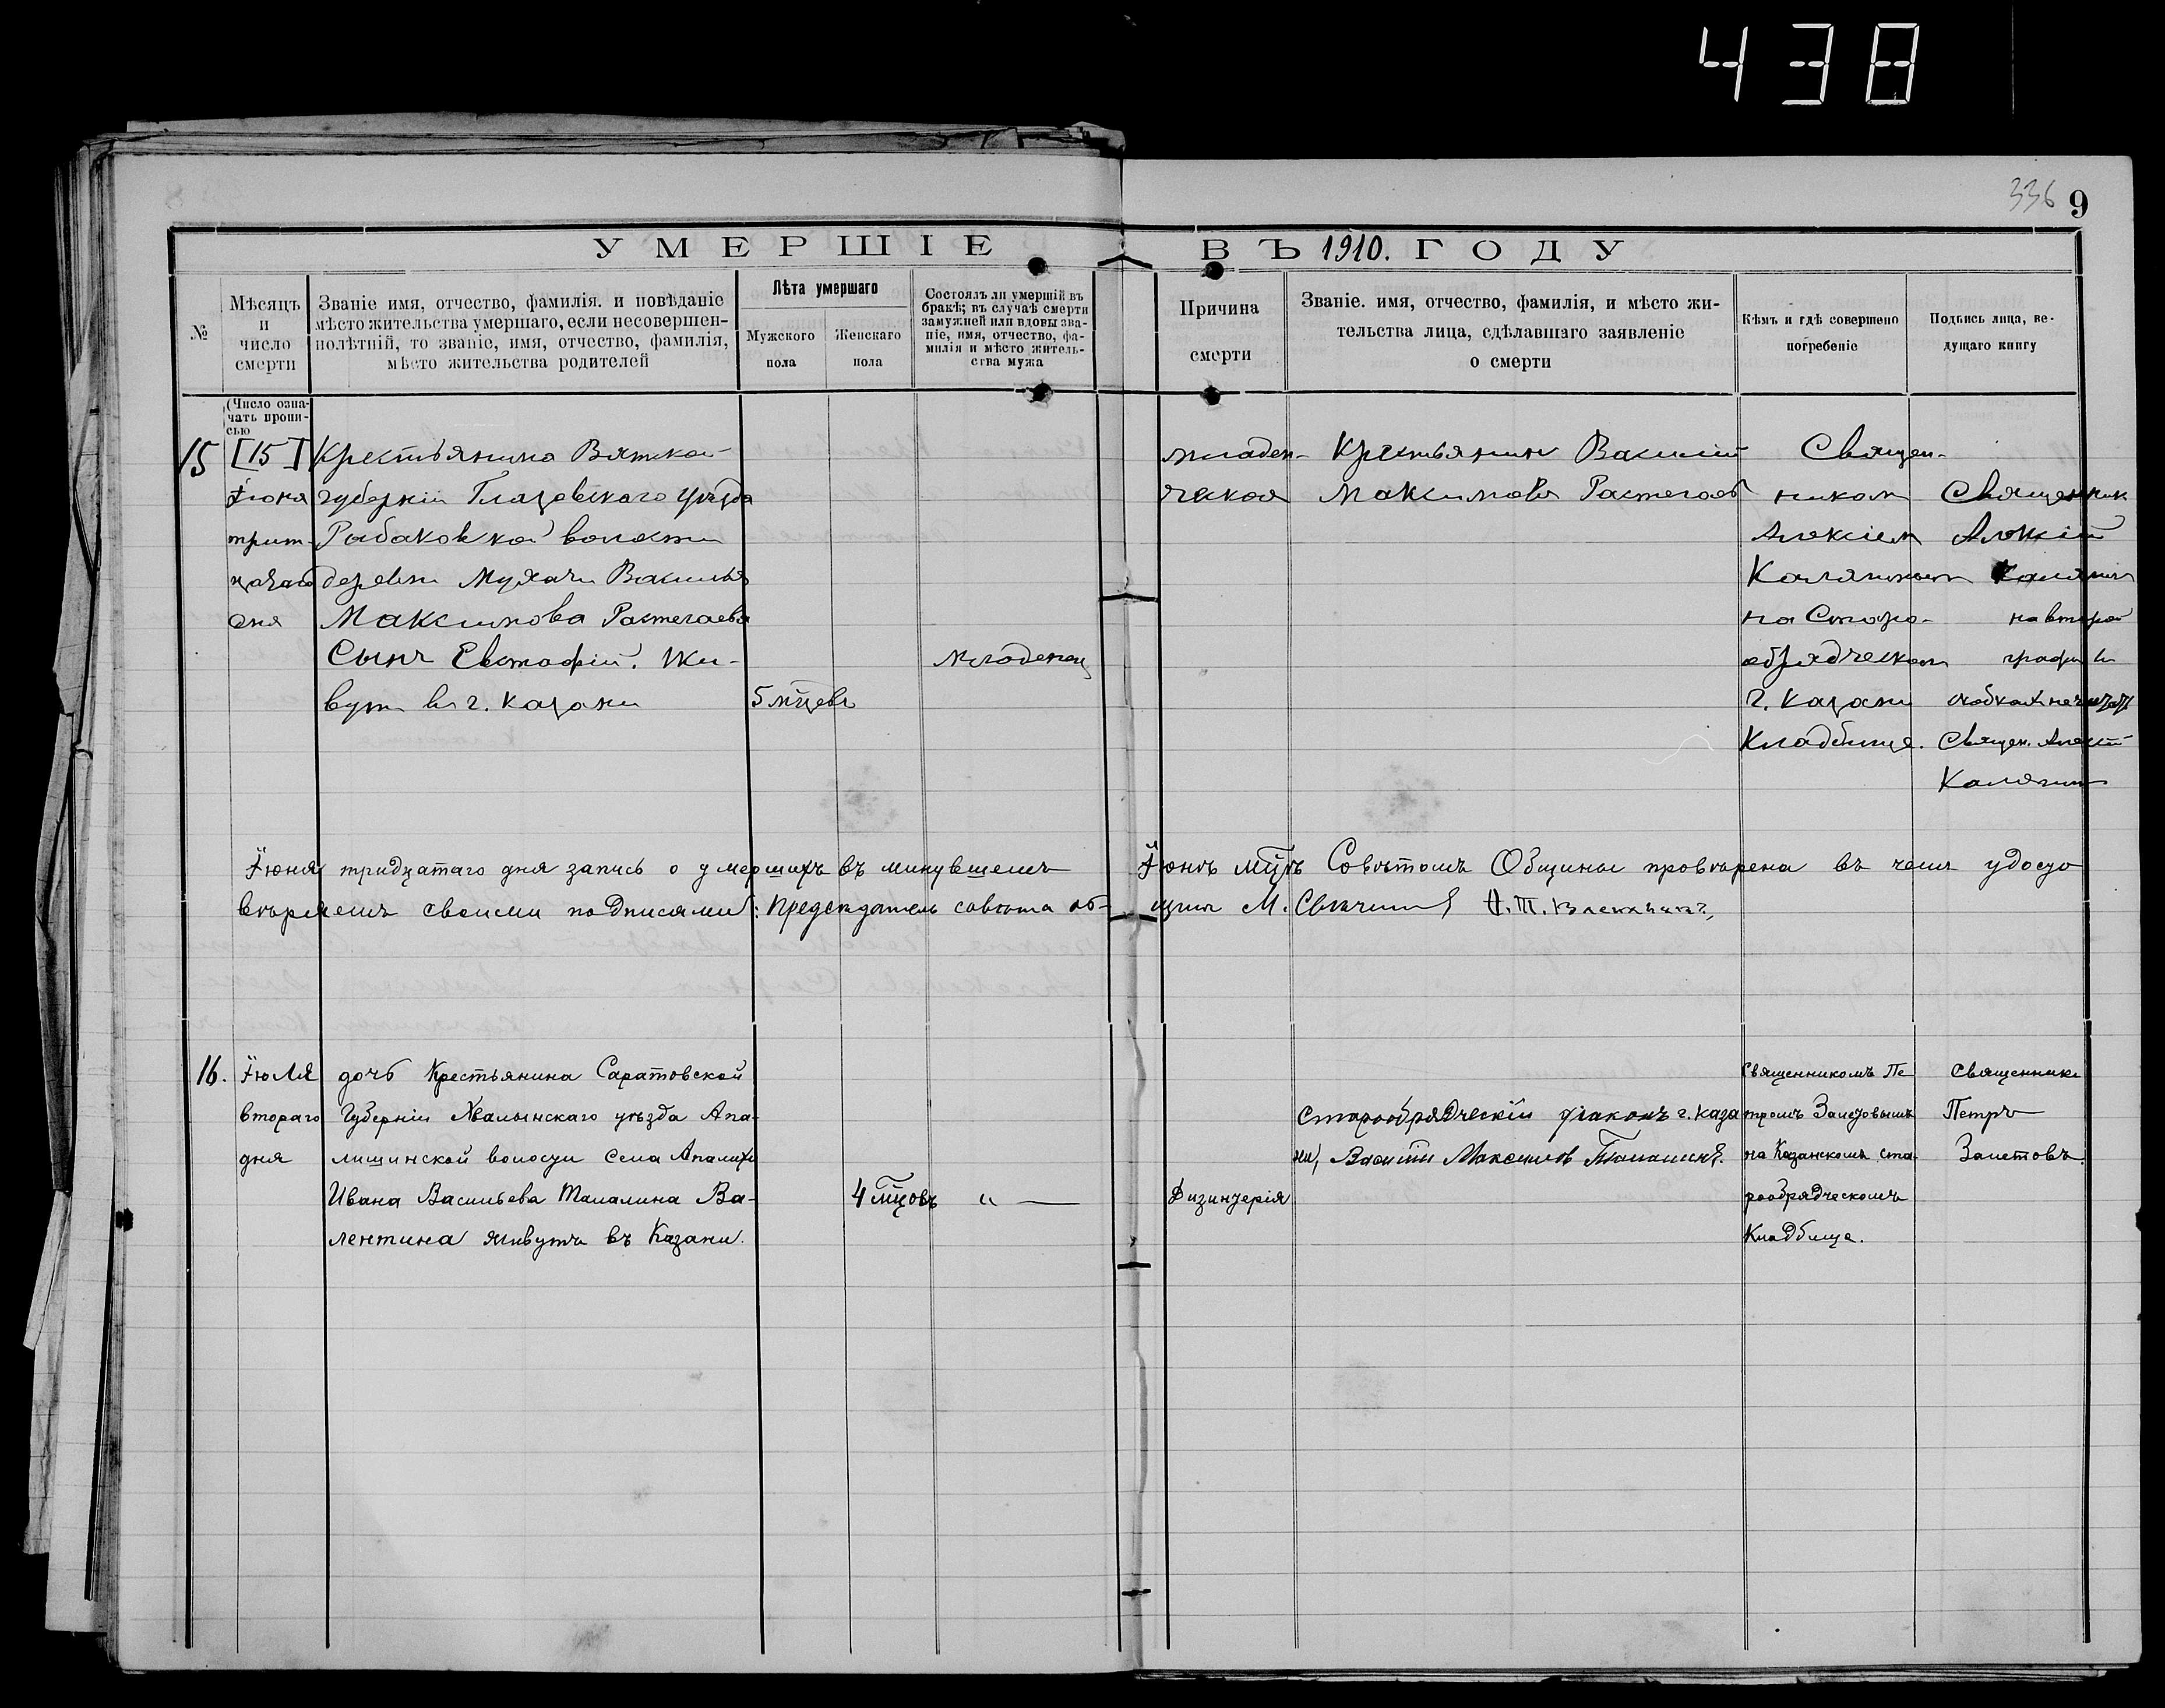 438
336 9
УМЕРШІЕ ВЪ 1910. ГОДУ
№
Мѣсяцъ
и
число
смерти
Званіе имя, отчество, фамилія. и повѣданіе
мѣсто жительства умершаго, если несовершен-
нолѣтній, то званіе, имя, отчество, фамилія,
мѣсто жительства родителей
Лѣта умершаго
Мужского
пола
Женскаго
пола
Состоялъ ли умершій въ
бракѣ; въ случаѣ смерти
замужней или вдовы зва-
ніе, имя, отчество, фа-
милія и мѣсто житель-
ства мужа
Причина
смерти
Званіе. имя, отчество, фамилія, и мѣсто жи-
тельства лица, сдѣлавшаго заявленіе
о смерти
Кѣмъ и гдѣ совершено
погребеніе
Подпись лица, ве-
дущаго книгу
(Число озна-
чать пропи-
сью
15
[15]
Іюня
трит-
цатаго
дня
Крестьянина Вятской
губерніи Глазовскаго уѣзда
Рыбаковской волости
деревни Мухачи Василья
Максимова Растегаева
Сынъ Евстафій. Жи-
вутъ въ г. Казани
5 мѣцевъ
Младенец
младен-
ческая
Крестьянин Василій
Максимовъ Растегаев
Священ-
ником
Алексіем
Калягиным
на Старо-
обрядческом
г. Казани
Кладбище.
Священник
Алексій
Калягин
на второй
графи в
скобках не читать
Священ. Алексій
Калягин
Іюня тридцатаго дня запись о умершихъ въ минувшемъ Іюнѣ мцѣ Совѣтомъ Общины провѣрена въ чемъ удосто
вѣряемъ своими подписями: Председатель совѣта об- щины М.
16.
Іюля
втораго
дня
дочь Крестьянина Саратовской
Губерніи Хвалынскаго уѣзда Апа-
лишинской волости Села Апалихи
Ивана Васильева Маналина Ва-
лентина живутъ въ Казани.
4 мцовъ
" —
Дизинтерія
Старообрядческій діаконъ г. Каза
ни, Василій Максимов
Священникомъ Пе
тромъ Залетовымъ
на Казанскомъ ста-
рообрядческомъ
Кладбище.
Священникъ
Петръ
Залетовъ.